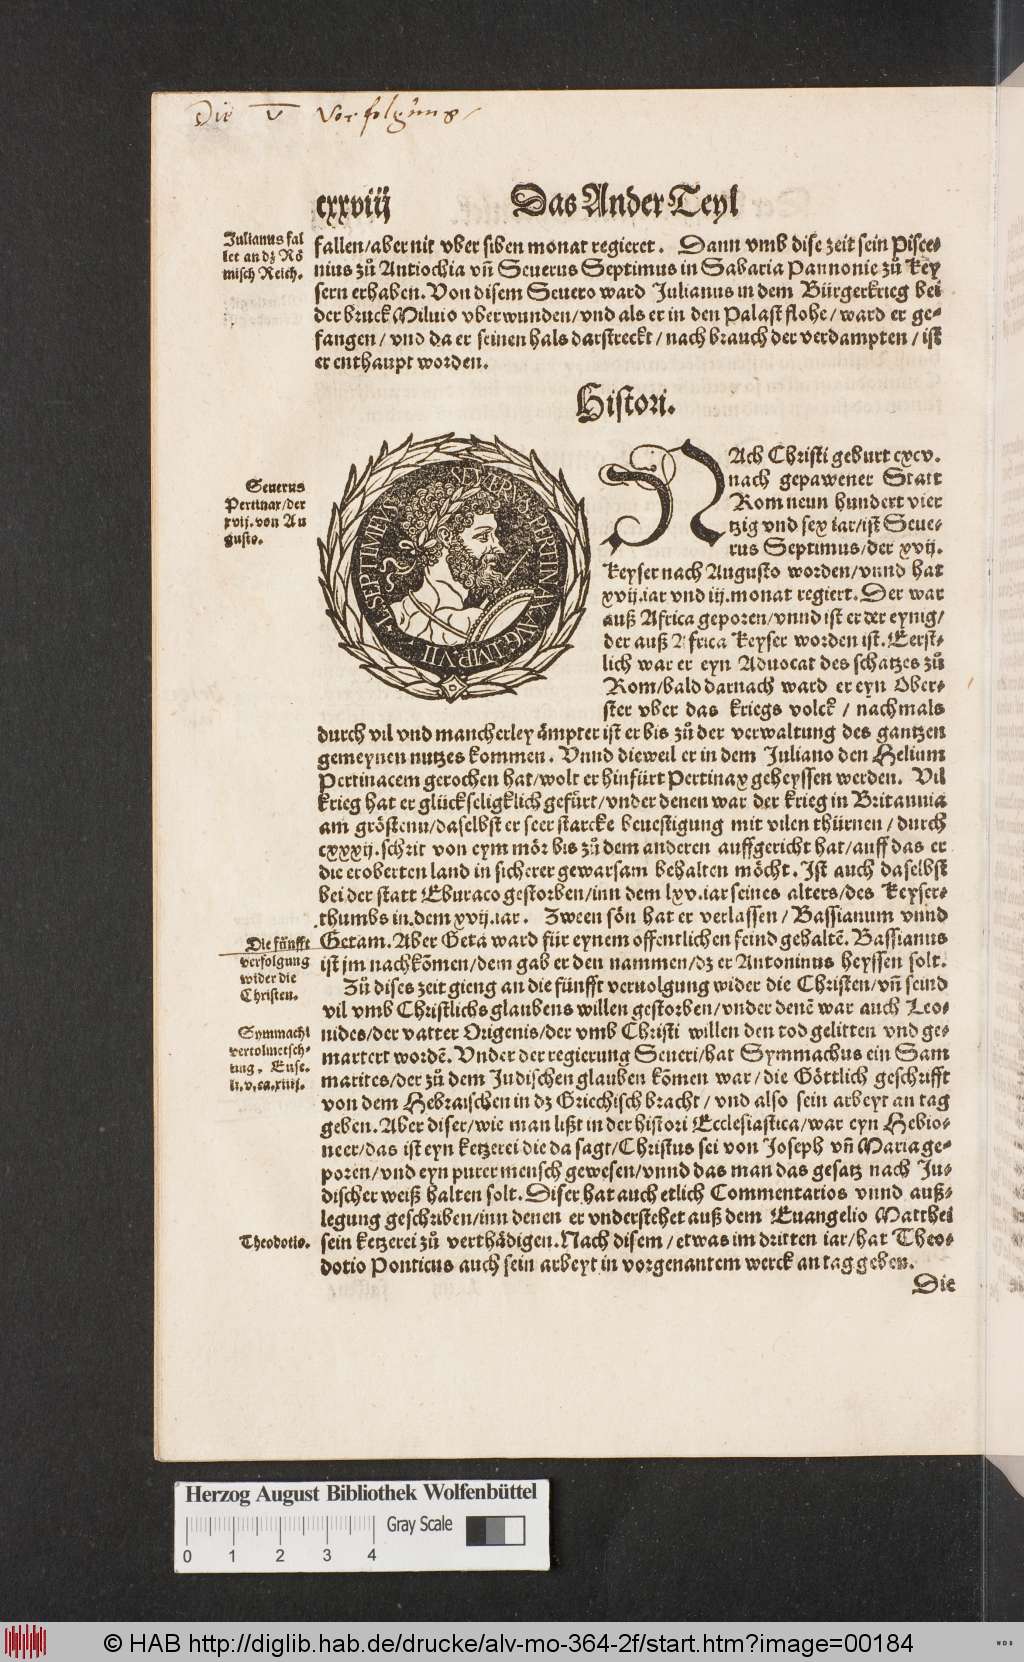 Die V Vorfolgung
cxxviij Das Ander Teyl
Julianus fal
let an dz Rö
misch Reich.
fallen/aber nit vber siben monat regieret. Dann vmb dise zeit sein Pisce⸗
nius zů Antiochia vñ Seuerus Septimus in Sabaria Pannonie zů Key
sern erhaben. Von disem Seuero ward Julianus in dem Bürgerkrieg bei
der bruck Miluio vberwunden/vnd als er in den Palast flohe/ward er ge⸗
fangen/vnd da er seinen hals darstreckt/nach brauch der verdampten/ist
er enthaupt worden.
Histori.
Seuerus
Pertinax/der
xvij. von Au
gusto.
L. SEPTIMIEVS SEVERVS PERTINAX AVG. IMP. VII
NAch Christi geburt cxcv.
nach gepawener Statt
Rom neun hundert vier
tzig vnd sex iar/ist Seue⸗
rus Septimus/der xvij.
Keyser nach Augusto worden/vnnd hat
xvij.iar vnd iij.monat regiert. Der war
auß Africa geporen/vnnd ist er der eynig/
der auß Africa Keyser worden ist. Eerst⸗
lich war er eyn Aduocat des schatzes zů
Rom/bald darnach ward er eyn Ober⸗
ster vber das kriegs volck/nachmals
durch vil vnd mancherley ämpter ist er bis zů der verwaltung des gantzen
gemeynen nutzes kommen. Vnnd dieweil er in dem Juliano den Helium
Pertinacem gerochen hat/wolt er hinfürt Pertinax geheyssen werden. Vil
krieg hat er glückseligklich gefürt/vnder denen war der krieg in Britannia
am gröstenn/daselbst er seer starcke beuestigung mit vilen thürnen/durch
cxxxij.schrit von eym mör bis zů dem anderen auffgericht hat/auff das er
die eroberten land in sicherer gewarsam behalten möcht. Ist auch daselbst
bei der statt Eburaco gestorben/inn dem lxv.iar seines alters/des Keyser⸗
thumbs in dem xvij.iar. Zween sön hat er verlassen/Bassianum vnnd
Getam. Aber Geta ward für eynem offentlichen feind gehaltē. Bassianus
ist jm nachkōmen/dem gab er den nammen/dz er Antoninus heyssen solt.
Die fünfft
verfolgung
wider die
Christen.
Zů dises zeit gieng an die fünfft veruolgung wider die Christen/vñ seind
vil vmb Christlichs glaubens willen gestorben/vnder denē war auch Leo⸗
nides/der vatter Origenis/der vmb Christi willen den tod gelitten vnd ge⸗
martert wordē. Vnder der regierung Seueri/hat Symmachus ein Sam
marites/der zů dem Judischen glauben kōmen war/die Göttlich geschrifft
von dem Hebraischen in dz Griechisch bracht/vnd also sein arbeyt an tag
geben. Aber diser/wie man lißt in der histori Ecclesiastica/war eyn Hebio⸗
neer/das ist eyn ketzerei die da sagt/Christus sei von Joseph vñ Maria ge⸗
poren/vnd eyn purer mensch gewesen/vnnd das man das gesatz nach Ju⸗
discher weiß halten solt. Diser hat auch etlich Commentarios vnnd auß⸗
legung geschriben/inn denen er vnderstehet auß dem Euangelio Matthei
sein ketzerei zů verthädigen. Nach disem/etwas im dritten iar/hat Theo⸗
dotio Ponticus auch sein arbeyt in vorgenantem werck an tag geben.
Symmachi
vertolmetsch⸗
ung. Euse.
li.v.ca.xiiij.
Theodotio.
Die
Herzog August Bibliothek Wolfenbüttel
Gray Scale
0 1 2 3 4
© HAB http://diglib.hab.de/drucke/alv-mo-364-2f/start.htm?image=00184